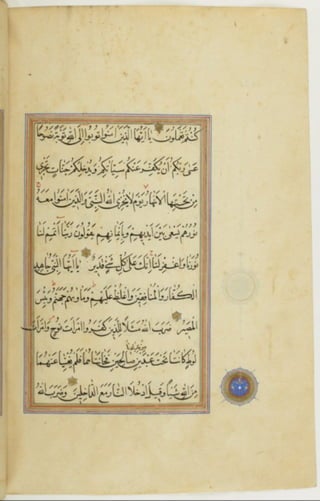 كُنْتُمْ تَعْمَلُونَ يَا اَيُّهَا الَّذِينَ اٰمَنُوا تُوبُوا اِلَى اللّٰهِ تَوْبَةً نَصُوحًا
عَسٰى رَبُّكُمْ اَنْ يُكَفِّرَ عَنْكُمْ سَيِّاٰتِكُمْ وَيُدْخِلَكُمْ جَنَّاتٍ تَجْرِى
مِنْ تَحْتِهَا الْاَنْهَارُ يَوْمَ لَا يُخْزِى اللّٰهُ النَّبِىَّ وَالَّذِينَ اٰمَنُوا مَعَهُ
نُورُهُمْ يَسْعٰى بَيْنَ اَيْدِيهِمْ وَبِاَيْمَانِهِمْ يَقُولُونَ رَبَّنَا اَتْمِمْ لَنَا
نُورَنَا وَاغْفِرْ لَنَا اِنَّكَ عَلٰى كُلِّ شَىْءٍ قَدِيرٌ يَا اَيُّهَا النَّبِىُّ جَاهِدِ
الْكُفَّارَ وَالْمُنَافِقِينَ وَاغْلُظْ عَلَيْهِمْ وَمَأْوٰيهُمْ جَهَنَّمُ وَبِئْسَ
الْمَصِيرُ ضَرَبَ اللّٰهُ مَثَلًا لِلَّذِينَ كَفَرُوا امْرَاَتَ نُوحٍ وَامْرَاَتَ
لُوطٍ كَانَتَا تَحْتَ عَبْدَيْنِ مِنْ عِبَادِنَا صَالِحَيْنِ فَخَانَتَاهُمَا فَلَمْ يُغْنِيَا عَنْهُمَا
مِنَ اللّٰهِ شَيْئًا وَقِيلَ ادْخُلَا النَّارَ مَعَ الدَّاخِلِينَ وَضَرَبَ اللّٰهُ